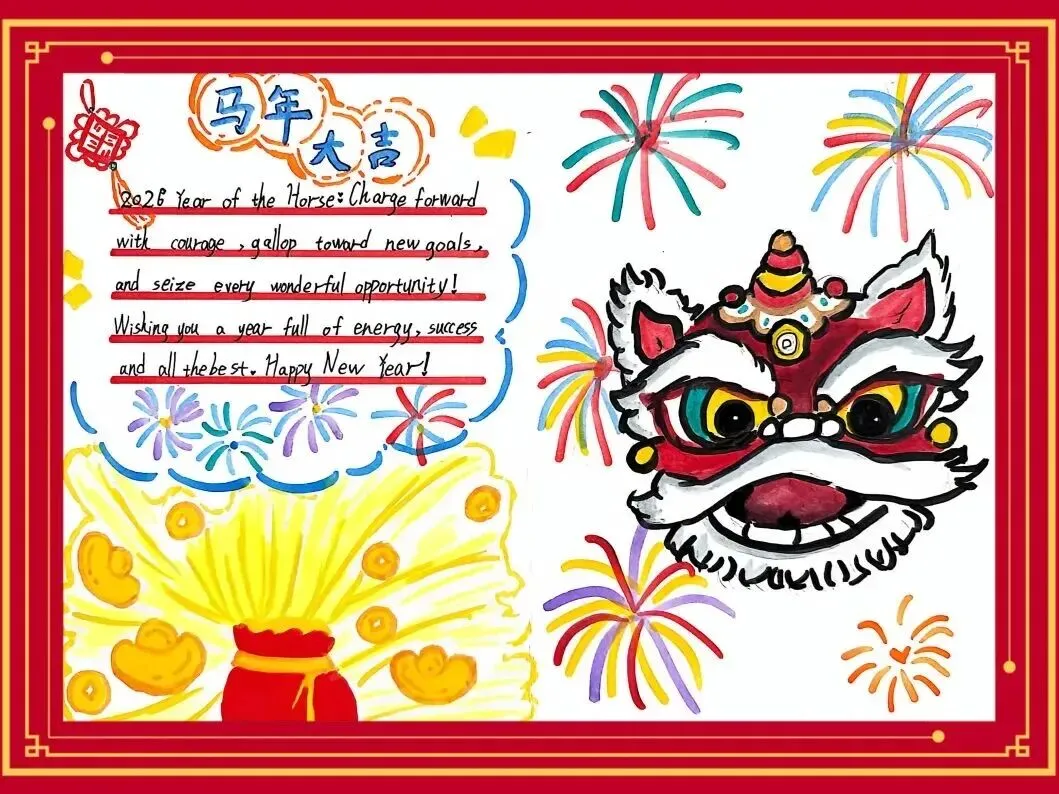 马年
大吉
2026 Year of the Horse: Charge forward
with courage, gallop toward new goals,
and seize every wonderful opportunity!
Wishing you a year full of energy, success
and all the best. Happy New Year!